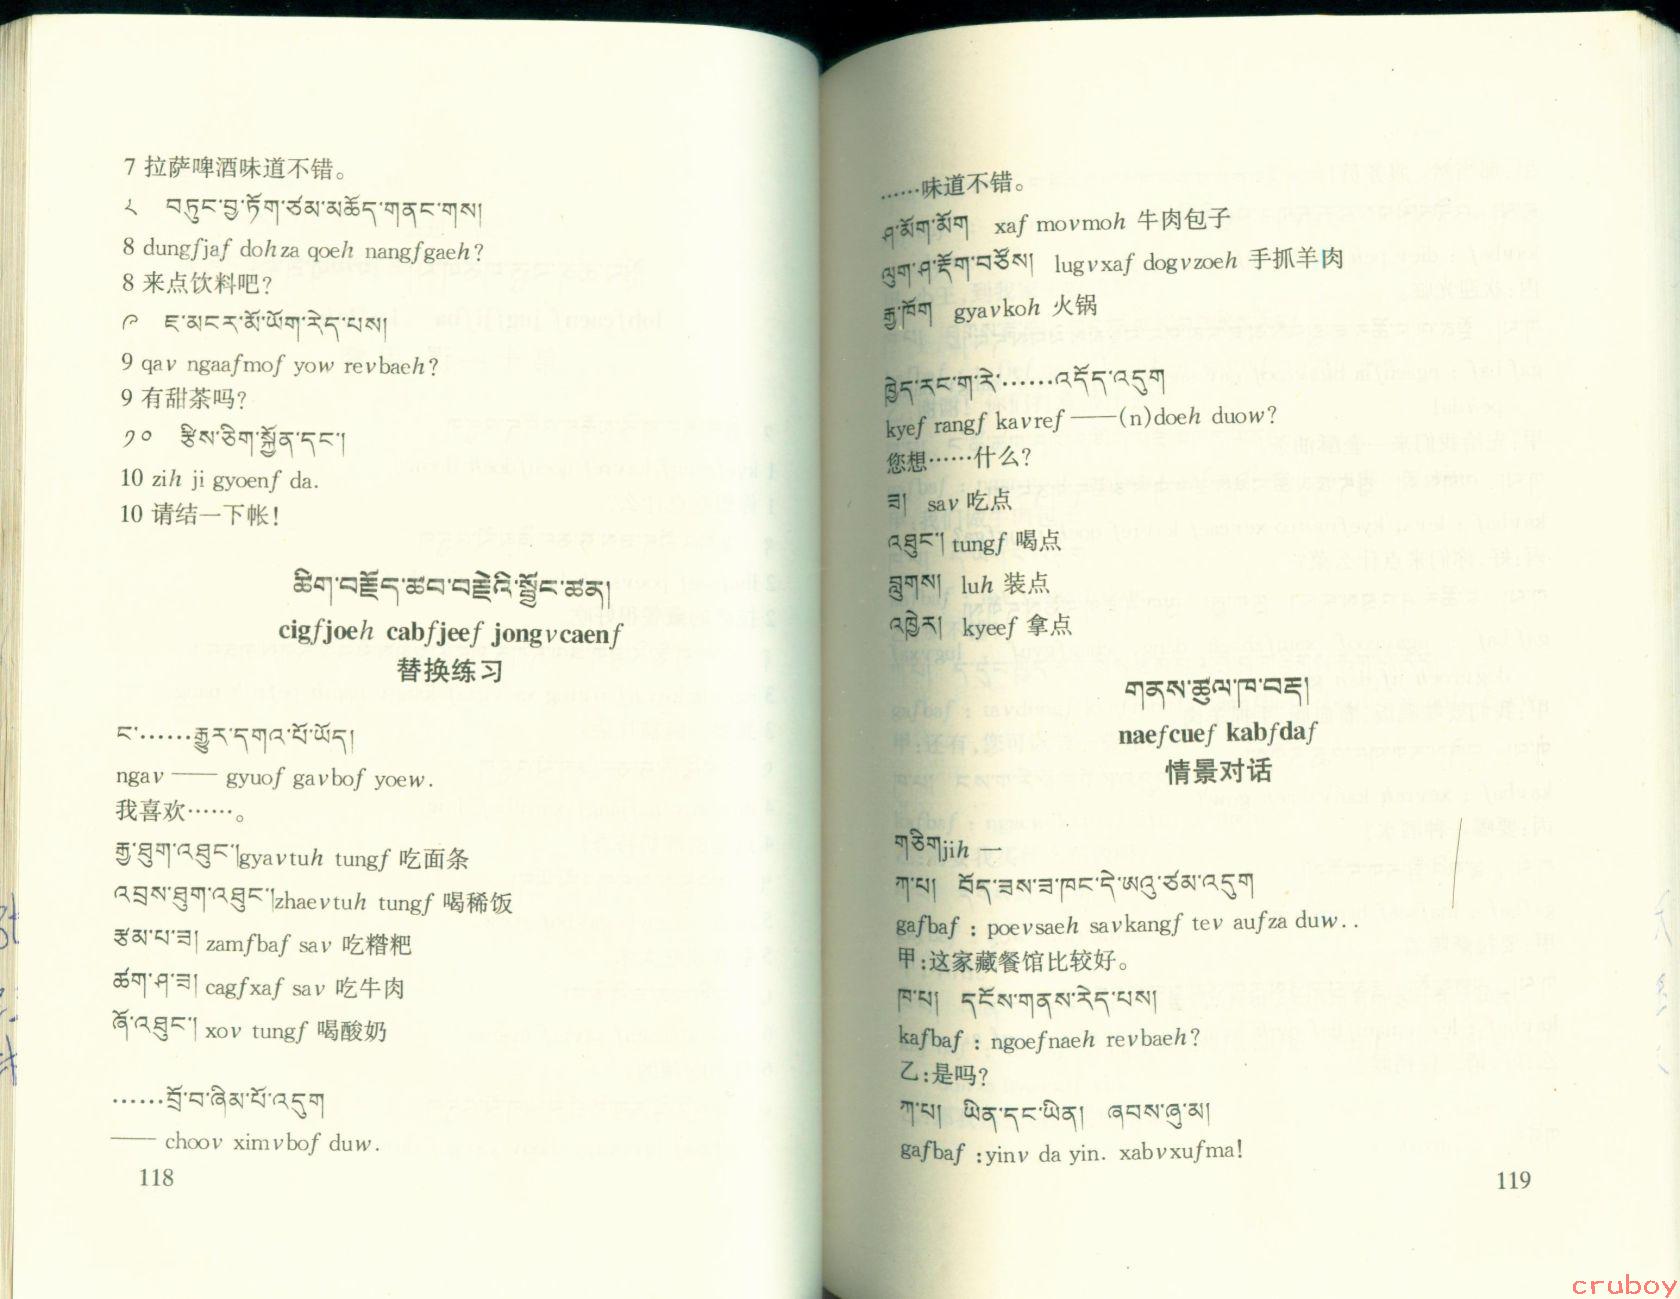 7 拉萨啤酒味道不错。
༨ བཏུང་བྱ་ཏོག་ཙམ་མཆོད་གནང་གས།
8 dungfjaf dohza qoeh nangfgaeh?
8 来点饮料吧?
༩ ཇ་མངར་མོ་ཡོག་རེད་པས།
9 qav ngaafmof yow revbaeh?
9 有甜茶吗?
༡༠ རྩིས་ཅིག་སྐྱོན་དང་།
10 zih ji gyoenf da.
10 请结一下帐!
ཚིག་བརྗོད་ཚབ་བརྗེའི་སྦྱོང་ཚན།
cigfjoeh cabfjeef jongvcaenf
替换练习
ང་……རྒྱུར་དགའ་པོ་ཡོད།
ngav —— gyuof gavbof yoew.
我喜欢……。
རྒྱ་ཐུག་འཐུང་།gyavtuh tungf 吃面条
འབྲས་ཐུག་འཐུང་།zhaevtuh tungf 喝稀饭
རྩམ་པ་ཟ། zamfbaf sav 吃糌粑
ཚག་ཤ་ཟ། cagfxaf sav 吃牛肉
ཞོ་འཐུང་། xov tungf 喝酸奶
……བྲོ་བ་ཞིམ་པོ་འདུག
—— choov ximvbof duw.
118
……味道不错。
ཤ་མོག་མོག xaf movmoh 牛肉包子
ལུག་ཤ་རྡོག་བཙོས། lugvxaf dogvzoeh 手抓羊肉
རྒྱ་ཁོག gyavkoh 火锅
ཁྱེད་རང་ག་རེ་……འདོད་འདུག
kyef rangf kavref ——(n)doeh duow?
您想……什么?
ཟ། sav 吃点
འཐུང་། tungf 喝点
བླུགས། luh 装点
འཁྱེར། kyeef 拿点
གནས་ཚུལ་ཁ་བརྡ།
naefcuef kabfdaf
情景对话
གཅིགjih 一
ཀ་པ། བོད་ཟས་ཟ་ཁང་དེ་ཨའུ་ཙམ་འདུག
gafbaf : poevsaeh savkangf tev aufza duw..
甲:这家藏餐馆比较好。
ཁ་པ། དངོས་གནས་རེད་པས།
kafbaf : ngoefnaeh revbaeh?
乙:是吗?
ཀ་པ། ཡིན་དང་ཡིན། ཞབས་ཞུ་མ།
gafbaf :yinv da yin. xabvxufma!
119
cruboy